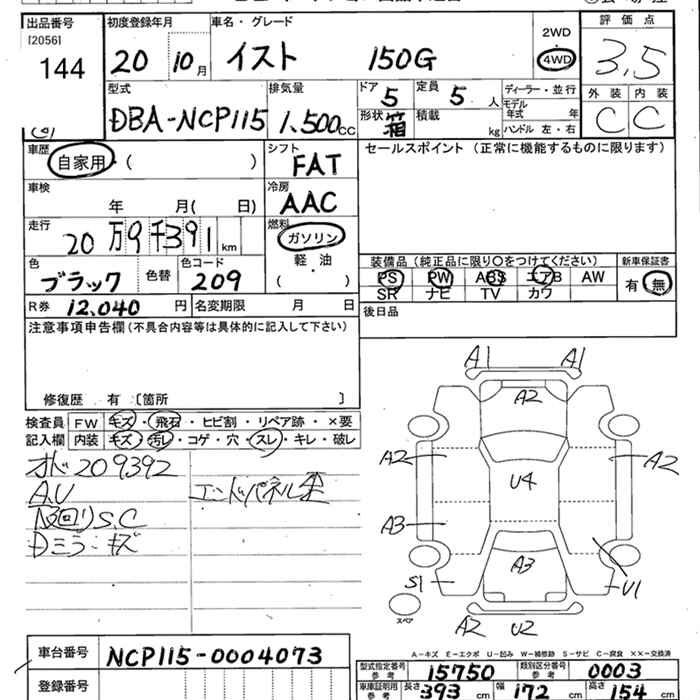 出品番号 初度登録年月 車名・グレード 評価点
[2056]
144 20 10月 イスト 150G 2WD 4WD 3,5
型式 排気量 ドア 定員 ディーラー・並行 外装 内装
DBA-NCP115 1,500cc 5 5人 モデル年式 年 C C
形状 箱 積載 kg ハンドル 左・右
車歴 自家用・( ) シフト FAT セールスポイント (正常に機能するものに限ります)
車検 年 月( 日) 冷房 AAC
走行 20万9千391km 燃料 ガソリン 軽・油 ( )
色 ブラック 色替 色コード 209
装備品 (純正品に限り○をつけてください) 新車保証書
PS PW ABS エアB AW 有・無
SR ナビ TV カワ
R券 12,040円 名変期限 月 日 後日品
注意事項申告欄(不具合内容等は具体的に記入して下さい)
修復歴 有 〔箇所 〕
検査員記入欄 FW キズ・飛石・ヒビ割・リペア跡・×要
内装 キズ・汚レ・コゲ・穴・スレ・キレ・破レ
オド209392
A,U エンドパネル歪
下回りS,C
Dミラーキズ
A1 A1
A2
A2 U4 A2
A3
A3
S1 U1
スペア
A2 U2
A-キズ E-エクボ U-凹み W-補修跡 S-サビ C-腐食 ××-交換済
車台番号 NCP115-0004073
型式指定番号 参考 15750 類別区分番号 参考 0003
登録番号
車庫証明用 参考 長さ 393cm 幅 172cm 高さ 154cm